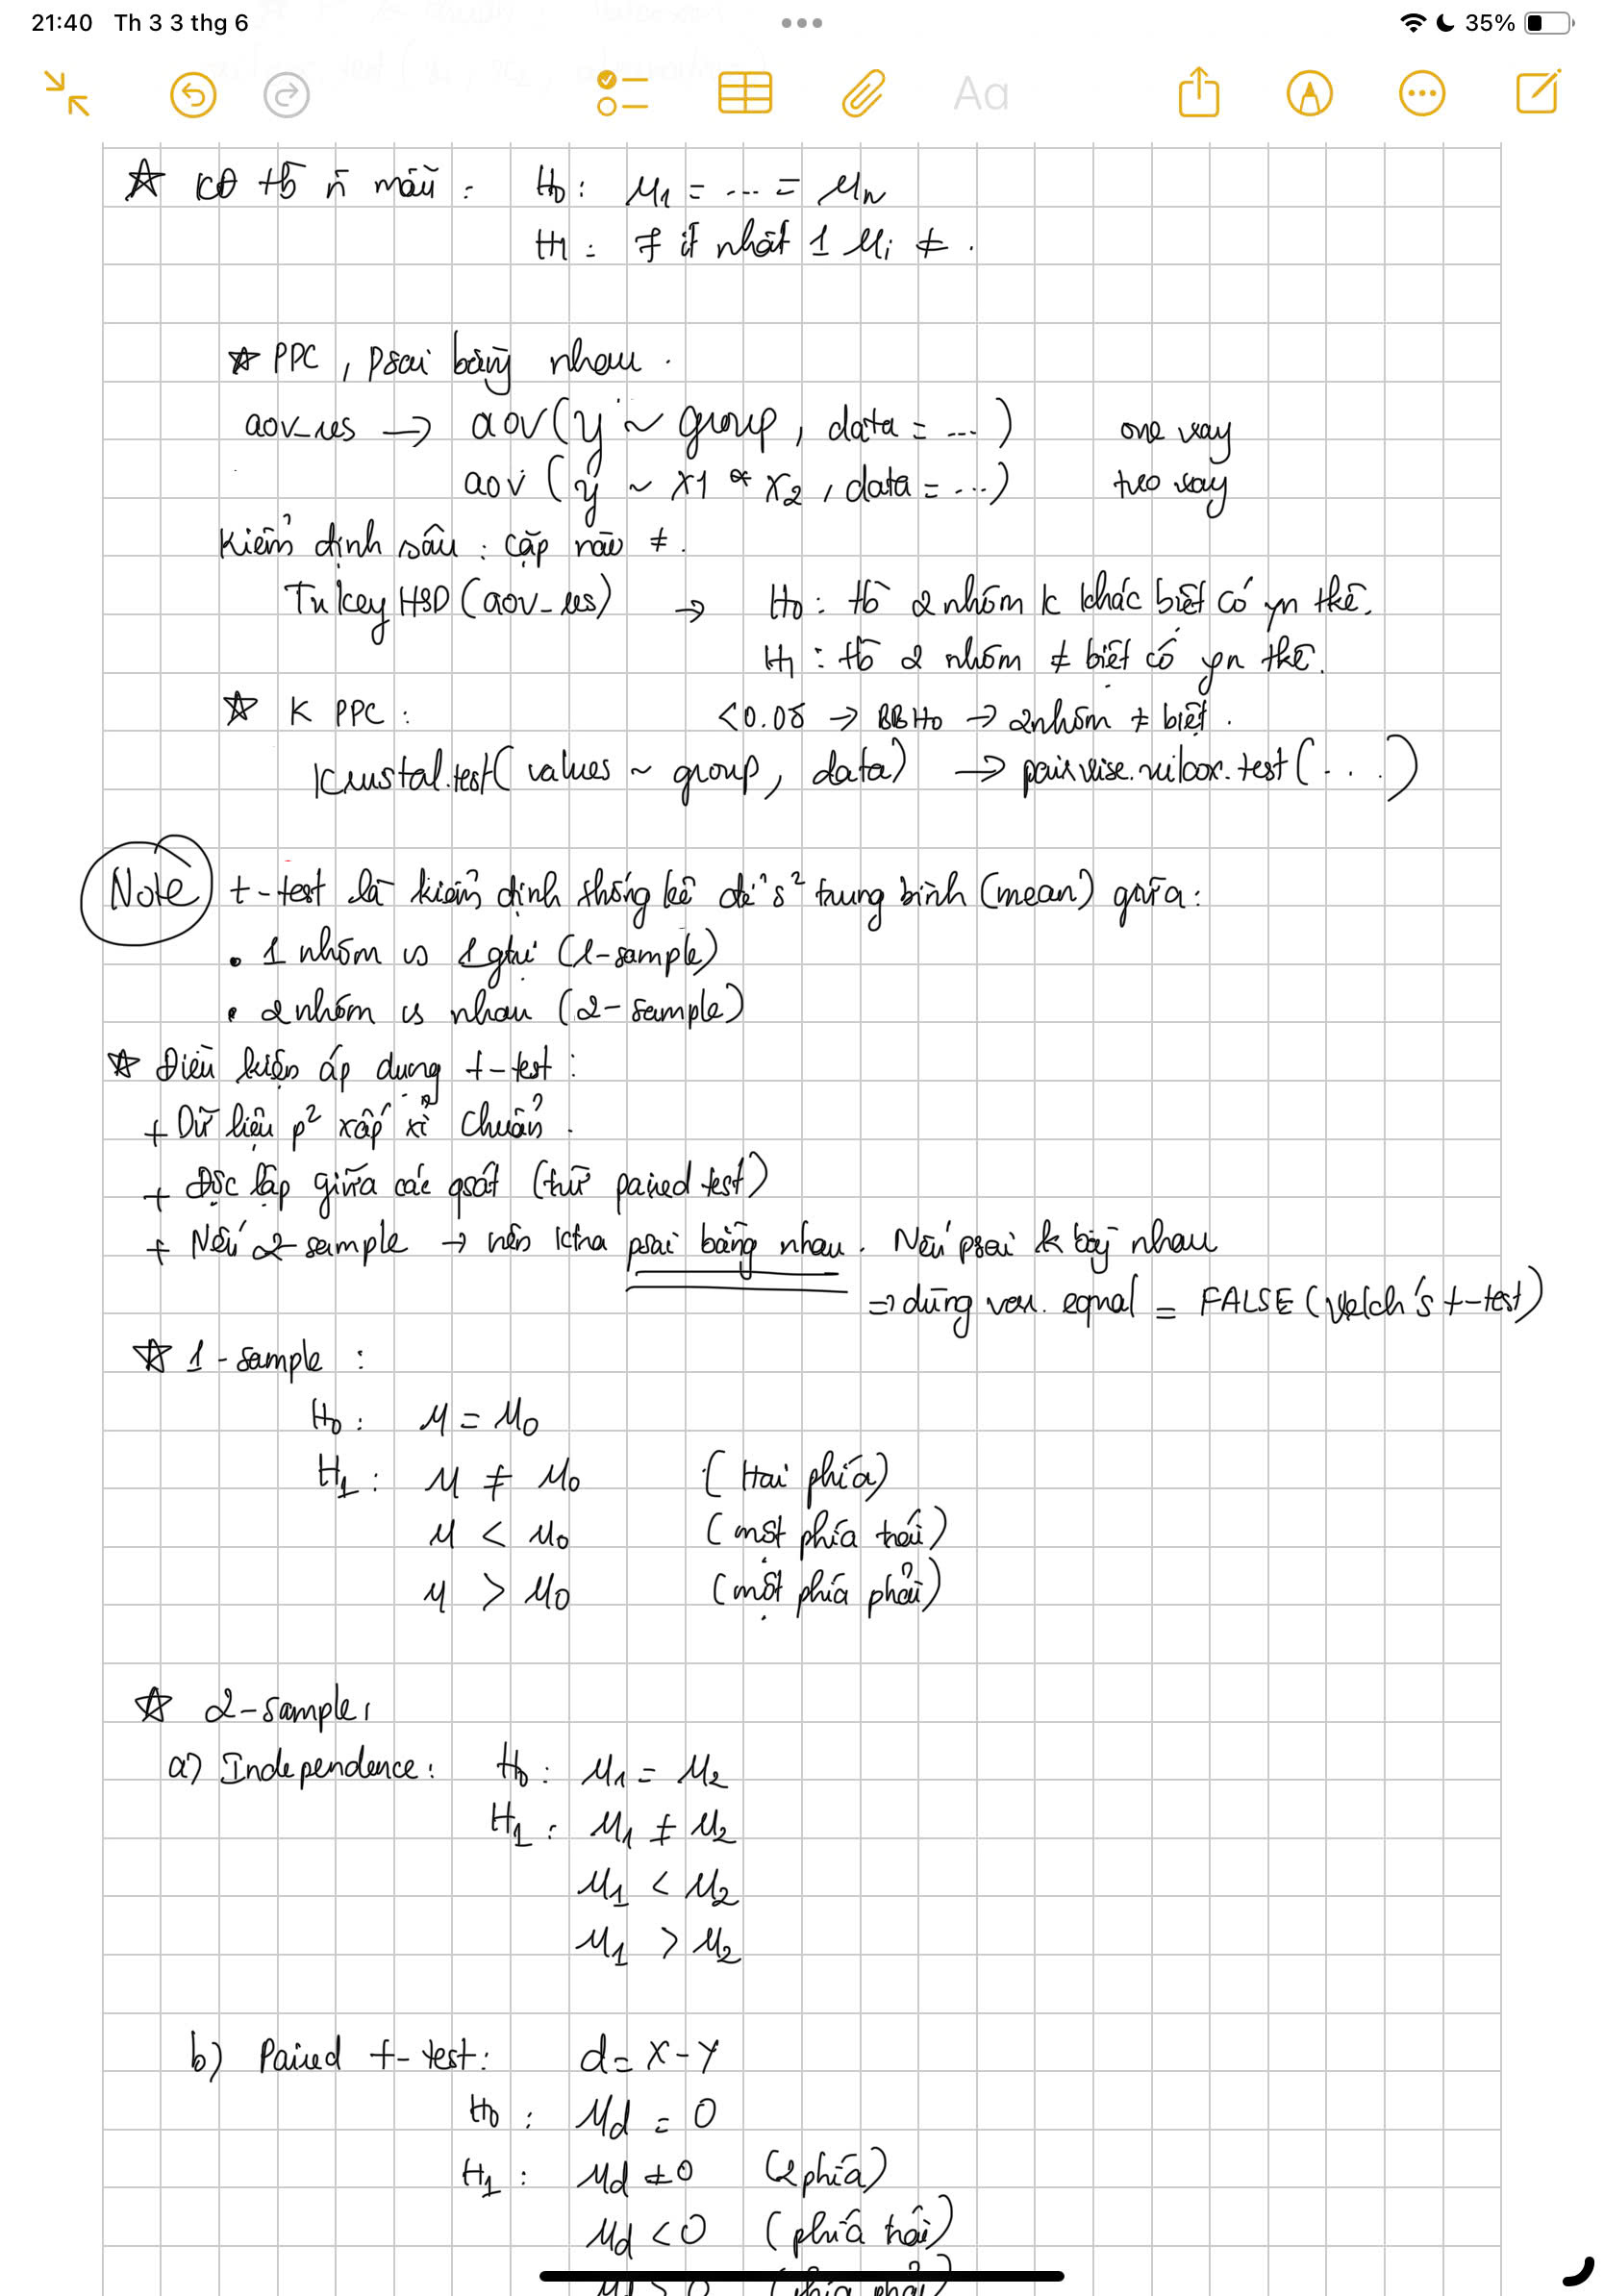 21:40 Th 3 3 thg 6 35%
Aa
☆ KĐ tb n mẫu : H0 : μ1 = ... = μn
H1 : ∃ ít nhất 1 μi ≠ .
☆ PPC , psai bằng nhau .
aov_res → aov(y ~ group, data = ...) one way
aov (y ~ x1 * x2 , data = ...) two way
Kiểm định sâu : cặp nào ≠ .
TukeyHSD(aov_res) → H0 : tb 2 nhóm k khác biệt có yn tkê.
H1 : tb 2 nhóm ≠ biệt có yn tkê.
☆ K PPC : <0.05 → BBH0 → 2 nhóm ≠ biệt .
kruskal.test(values ~ group, data) → pairwise.wilcox.test(...)
Note t-test là kiểm định thống kê để s² trung bình (mean) giữa :
• 1 nhóm vs 1 gtrị (1-sample)
• 2 nhóm vs nhau (2-sample)
☆ Điều kiện áp dụng t-test :
+ Dữ liệu p² xấp xỉ chuẩn .
+ Độc lập giữa các qsát (trừ paired test)
+ Nếu 2-sample → nên ktra psai bằng nhau . Nếu psai k bằng nhau
⇒ dùng var.equal = FALSE (Welch's t-test)
☆ 1-sample :
H0 : μ = μ0
H1 : μ ≠ μ0 (Hai phía)
μ < μ0 (một phía trái)
μ > μ0 (một phía phải)
☆ 2-sample,
a) Independence : H0 : μ1 = μ2
H1 : μ1 ≠ μ2
μ1 < μ2
μ1 > μ2
b) Paired t-test : d = X - Y
H0 : μd = 0
H1 : μd ≠ 0 (2 phía)
μd < 0 (phía trái)
μd > 0 (phía phải)